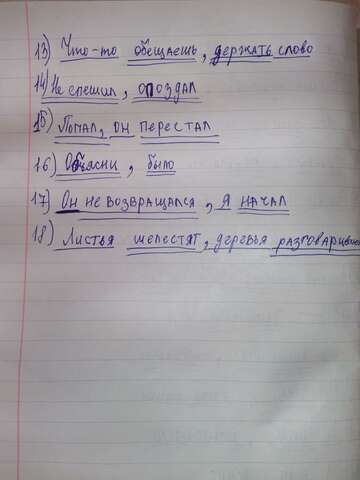 13) Что-то обещаешь, держать слово
14) Не спешил, опоздал
15) Попал, он перестал
16) Объясни, было
17) Он не возвращался, я начал
18) Листья шелестят, деревья